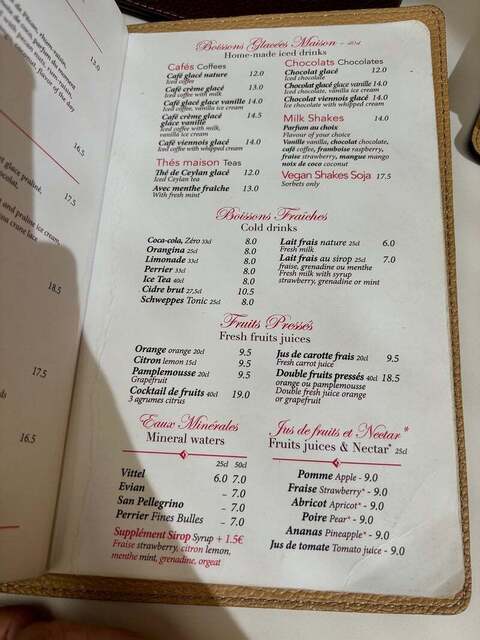 de Pleine, rhum raisin,
parfum du moment
, rum raisin,
t, coconut, flavor of the day
13.0
16.5
glace praliné,
chocolat,
17.5
and praline ice cream,
18.5
17.5
16.5
Boissons Glacées Maison - 40cl
Home-made iced drinks
Cafés Coffees
Café glacé nature 12.0
Iced coffee
Café crème glacé 13.0
Iced coffee with milk
Café glacé glace vanille 14.0
Iced coffee, vanilla ice cream
Café crème glacé 14.5
glace vanille
Iced coffee with milk,
vanilla ice cream
Café viennois glacé 14.0
Iced coffee with whipped cream
Thés maison Teas
Thé de Ceylan glacé 12.0
Iced Ceylan tea
Avec menthe fraîche 13.0
With fresh mint
Chocolats Chocolates
Chocolat glacé 12.0
Iced chocolate
Chocolat glacé glace vanille 14.0
Iced chocolate, vanilla ice cream
Chocolat viennois glacé 14.0
Ice chocolate with whipped cream
Milk Shakes 14.0
Parfum au choix
Flavour of your choice
Vanille vanilla, chocolat chocolate,
café coffee, framboise raspberry,
fraise strawberry, mangue mango
noix de coco coconut
Vegan Shakes Soja 17.5
Sorbets only
Boissons Fraîches
Cold drinks
Coca-cola, Zéro 33cl 8.0
Orangina 25cl 8.0
Limonade 33cl 8.0
Perrier 33cl 8.0
Ice Tea 40cl 8.0
Cidre brut 27,5cl 10.5
Schweppes Tonic 25cl 8.0
Lait frais nature 25cl 6.0
Fresh milk
Lait frais au sirop 25cl 7.0
fraise, grenadine ou menthe
Fresh milk with syrup
strawberry, grenadine or mint
Fruits Pressés
Fresh fruits juices
Orange orange 20cl 9.5
Citron lemon 15cl 9.5
Pamplemousse 20cl 9.5
Grapefruit
Cocktail de fruits 40cl 19.0
3 agrumes citrus
Jus de carotte frais 20cl 9.5
Fresh carrot juice
Double fruits pressés 40cl 18.5
orange ou pamplemousse
Double fresh juice orange
or grapefruit
Eaux Minérales
Mineral waters
25cl 50cl
Vittel 6.0 7.0
Evian - 7.0
San Pellegrino - 7.0
Perrier Fines Bulles - 7.0
Supplément Sirop Syrup + 1.5€
Fraise strawberry, citron lemon,
menthe mint, grenadine, orgeat
Jus de fruits et Nectar*
Fruits juices & Nectar* 25cl
Pomme Apple - 9.0
Fraise Strawberry* - 9.0
Abricot Apricot* - 9.0
Poire Pear* - 9.0
Ananas Pineapple* - 9.0
Jus de tomate Tomato juice - 9.0